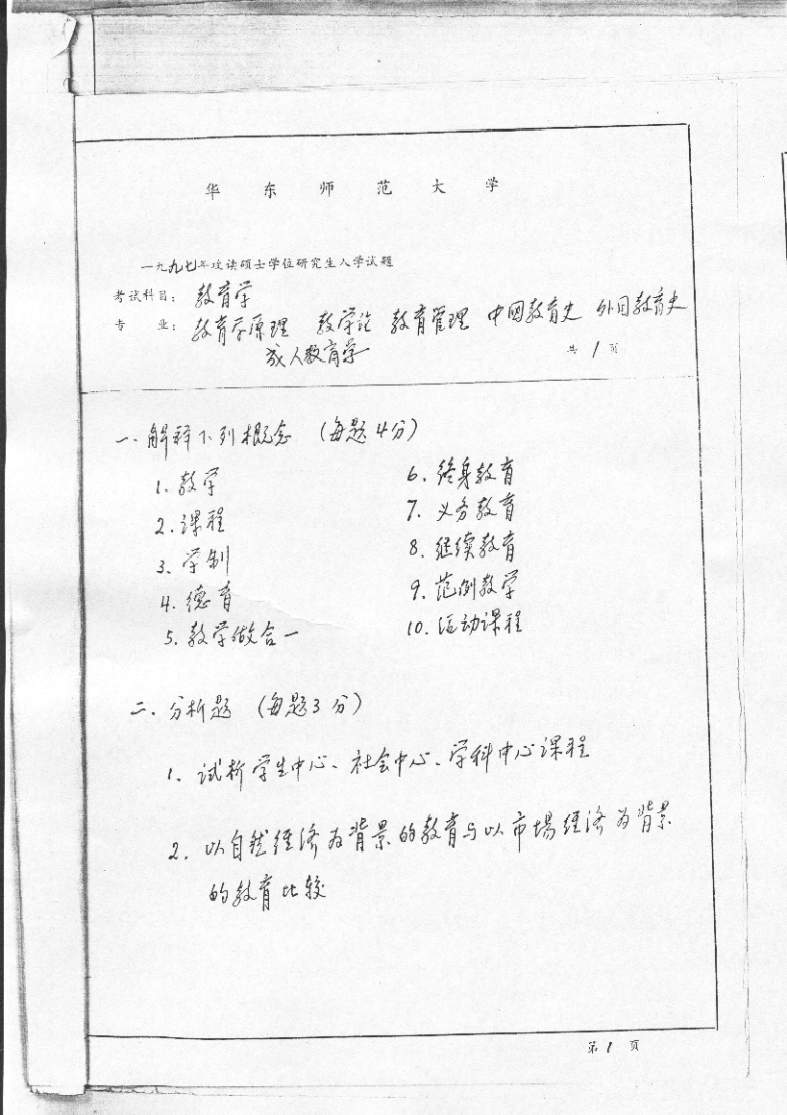 华东师范大学
一九九七年攻读硕士学位研究生入学试题
考试科目：教育学
专业：教育学原理 教学论 教育管理 中国教育史 外国教育史
成人教育学
共1页
一、解释下列概念（每题4分）
1. 教学
2. 课程
3. 学制
4. 德育
5. 教学做合一
6. 终身教育
7. 义务教育
8. 继续教育
9. 范例教学
10. 活动课程
二、分析题（每题3分）
1. 试析学生中心、社会中心、学科中心课程
2. 以自然经济为背景的教育与以市场经济为背景
的教育比较
第1页